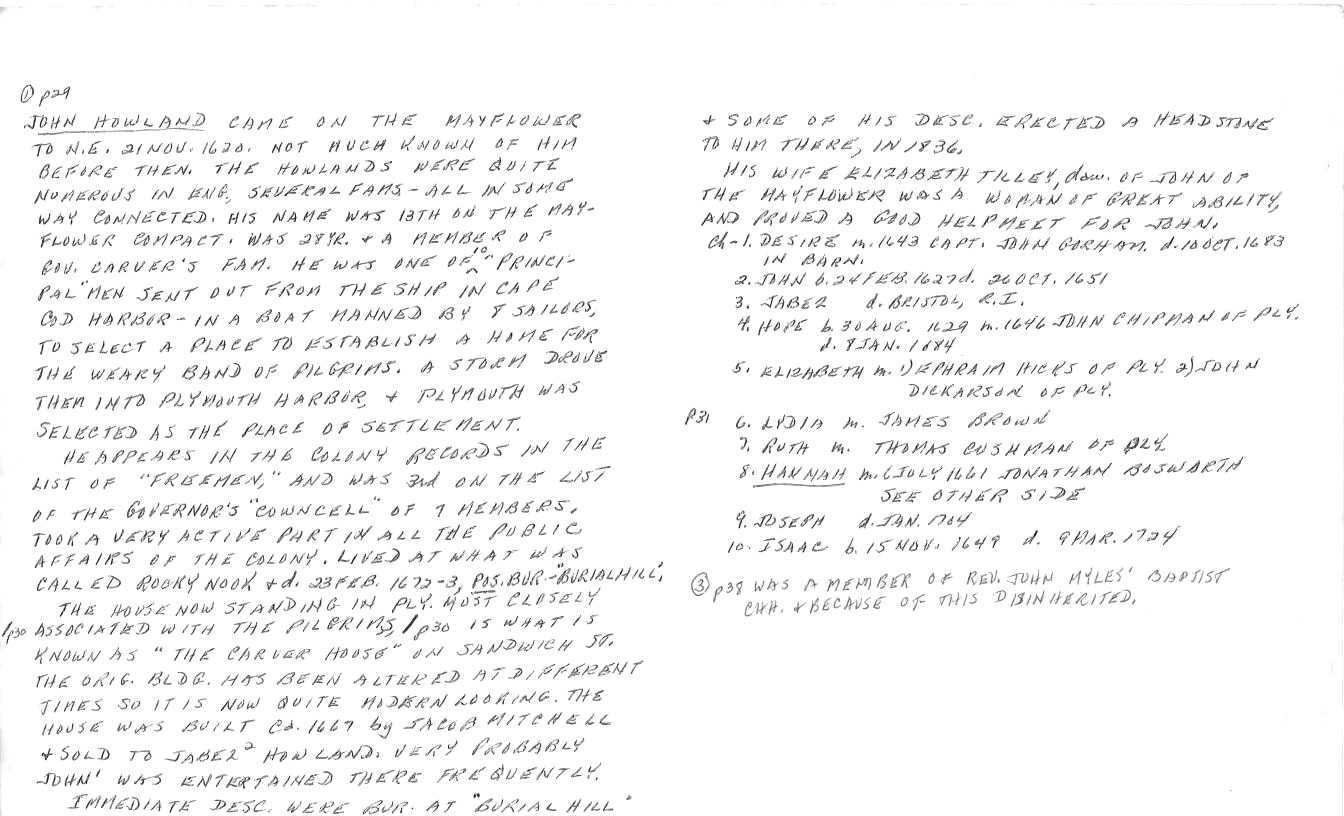 ① p29
JOHN HOWLAND CAME ON THE MAYFLOWER
TO N.E. 21 NOV. 1620. NOT MUCH KNOWN OF HIM
BEFORE THEN. THE HOWLANDS WERE QUITE
NUMEROUS IN ENG, SEVERAL FAMS - ALL IN SOME
WAY CONNECTED. HIS NAME WAS 13TH ON THE MAY-
FLOWER COMPACT. WAS 28 YR. & A MEMBER OF
GOV. CARVER'S FAM. HE WAS ONE OF 10 "PRINCI-
PAL" MEN SENT OUT FROM THE SHIP IN CAPE
COD HARBOR - IN A BOAT MANNED BY 8 SAILORS,
TO SELECT A PLACE TO ESTABLISH A HOME FOR
THE WEARY BAND OF PILGRIMS. A STORM DROVE
THEM INTO PLYMOUTH HARBOR, & PLYMOUTH WAS
SELECTED AS THE PLACE OF SETTLEMENT.
HE APPEARS IN THE COLONY RECORDS IN THE
LIST OF "FREEMEN," AND WAS 3rd ON THE LIST
OF THE GOVERNOR'S "COWNCELL" OF 7 MEMBERS.
TOOK A VERY ACTIVE PART IN ALL THE PUBLIC
AFFAIRS OF THE COLONY. LIVED AT WHAT WAS
CALLED ROCKY NOOK & d. 23 FEB. 1672-3, POS. BUR.-"BURIAL HILL".
THE HOUSE NOW STANDING IN PLY. MOST CLOSELY
/p30 ASSOCIATED WITH THE PILGRIMS, /p30 IS WHAT IS
KNOWN AS "THE CARVER HOUSE" ON SANDWICH ST.
THE ORIG. BLDG. HAS BEEN ALTERED AT DIFFERENT
TIMES SO IT IS NOW QUITE MODERN LOOKING. THE
HOUSE WAS BUILT Ca. 1667 by JACOB MITCHELL
& SOLD TO JABEZ² HOWLAND. VERY PROBABLY
JOHN' WAS ENTERTAINED THERE FREQUENTLY.
IMMEDIATE DESC. WERE BUR. AT "BURIAL HILL"
& SOME OF HIS DESC. ERECTED A HEADSTONE
TO HIM THERE, IN 1836.
HIS WIFE ELIZABETH TILLEY, dau. OF JOHN OF
THE MAYFLOWER WAS A WOMAN OF GREAT ABILITY,
AND PROVED A GOOD HELPMEET FOR JOHN.
Ch-1. DESIRE m. 1643 CAPT. JOHN GORHAM. d. 10 OCT. 1683
IN BARN.
2. JOHN b. 24 FEB. 1627 d. 26 OCT. 1651
3. JABEZ d. BRISTOL, R.I.
4. HOPE b. 30 AUG. 1629 m. 1646 JOHN CHIPMAN OF PLY.
d. 8 JAN. 1684
5. ELIZABETH m. 1) EPHRAIM HICKS OF PLY. 2) JOHN
DICKARSON OF PLY.
p31 6. LYDIA m. JAMES BROWN
7. RUTH m. THOMAS CUSHMAN OF PLY
8. HANNAH m. 6 JULY 1661 JONATHAN BOSWARTH
SEE OTHER SIDE
9. JOSEPH d. JAN. 1704
10. ISAAC b. 15 NOV. 1649 d. 9 MAR. 1724
③ p38 WAS A MEMBER OF REV. JOHN MYLES' BAPTIST
CHH. & BECAUSE OF THIS DISINHERITED.